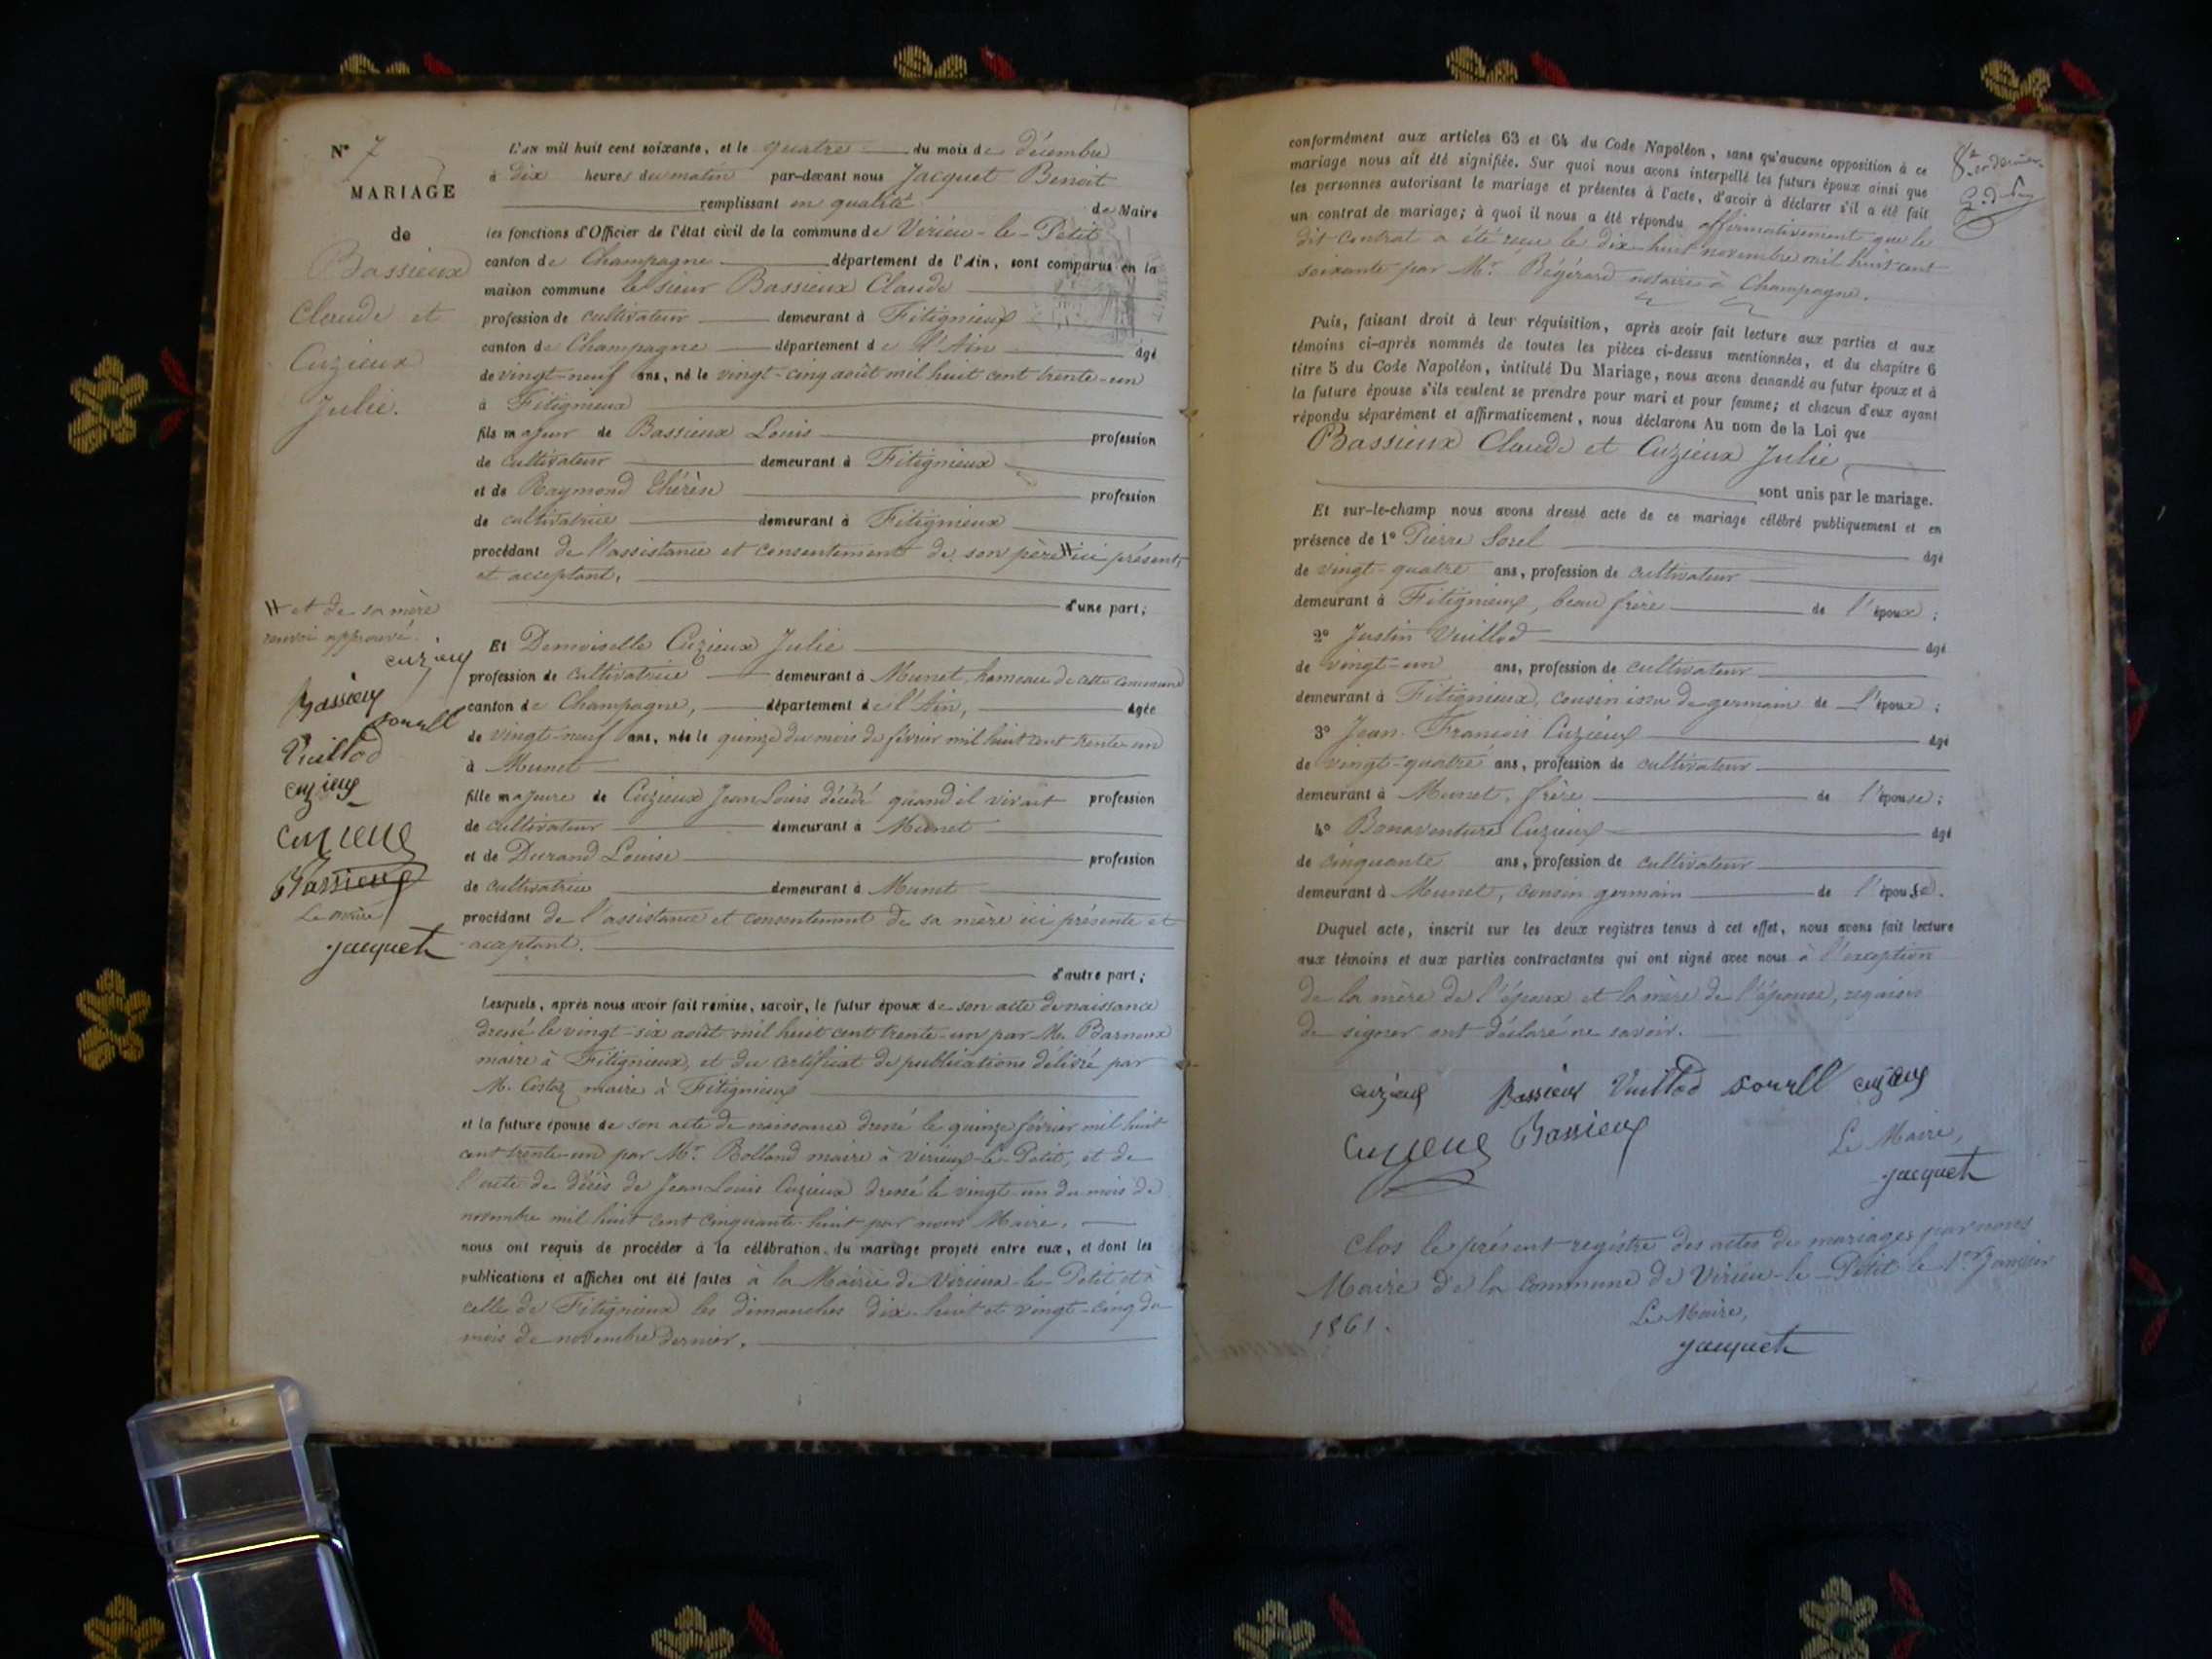 N° 7
MARIAGE
de
Bassieux
Claude et
Cuzieux
Julie.
L'an mil huit cent soixante, et le quatre du mois de décembre
à dix heures du matin par-devant nous Jacquet Benoit
remplissant en qualité de Maire
les fonctions d'Officier de l'état civil de la commune de Virieu-le-Petit
canton de Champagne département de l'Ain, sont comparus en la
maison commune le sieur Bassieux Claude
profession de cultivateur demeurant à Fitignieux
canton de Champagne département de l'Ain âgé
de vingt-neuf ans, né le vingt-cinq août mil huit cent trente-un
à Fitignieux
fils majeur de Bassieux Louis profession
de cultivateur demeurant à Fitignieux
et de Raymond Thérèse profession
de cultivatrice demeurant à Fitignieux
procédant de l'assistance et consentement de son père H ici présent
et acceptant,
d'une part;
H et de sa mère
renvoi approuvé.
cuzieux
Bassieux
sorell
Vuillod
cuzieux
cuzieux
Bassieux
Le maire
jacquet
Et Demoiselle Cuzieux Julie
profession de cultivatrice demeurant à Munet, hameau de cette commune
canton de Champagne, département de l'Ain, âgée
de vingt-neuf ans, née le quinze du mois de février mil huit cent trente-un
à Munet
fille majeure de Cuzieux Jean Louis décédé quand il vivait profession
de cultivateur demeurant à Munet
et de Durand Louise profession
de cultivatrice demeurant à Munet
procédant de l'assistance et consentement de sa mère ici présente et
acceptant.
d'autre part;
Lesquels, après nous avoir fait remise, savoir, le futur époux de son acte de naissance
dressé le vingt-six août mil huit cent trente-un par M. Barnoux
maire à Fitignieux, et du certificat de publications délivré par
M. Costaz maire à Fitignieux
et la future épouse de son acte de naissance dressé le quinze février mil huit
cent trente-un par Mr. Rolland maire à Virieux-le-Petit, et de
l'acte de décès de Jean Louis Cuzieux dressé le vingt-un du mois de
novembre mil huit cent cinquante-huit par nous Maire.
nous ont requis de procéder à la célébration du mariage projeté entre eux, et dont les
publications et affiches ont été faites à la Mairie de Virieux-le-Petit et à
celle de Fitignieux les dimanches dix-huit et vingt-cinq du
mois de novembre dernier.
conformément aux articles 63 et 64 du Code Napoléon, sans qu'aucune opposition à ce
mariage nous ait été signifiée. Sur quoi nous avons interpellé les futurs époux ainsi que
les personnes autorisant le mariage et présentes à l'acte, d'avoir à déclarer s'il a été fait
un contrat de mariage; à quoi il nous a été répondu affirmativement que le
dit contrat a été reçu le dix-huit novembre mil huit cent
soixante par Mr. Bégérard notaire à Champagne.
Puis, faisant droit à leur réquisition, après avoir fait lecture aux parties et aux
témoins ci-après nommés de toutes les pièces ci-dessus mentionnées, et du chapitre 6
titre 5 du Code Napoléon, intitulé Du Mariage, nous avons demandé au futur époux et à
la future épouse s'ils veulent se prendre pour mari et pour femme; et chacun d'eux ayant
répondu séparément et affirmativement, nous déclarons Au nom de la Loi que
Bassieux Claude et Cuzieux Julie,
sont unis par le mariage.
Et sur-le-champ nous avons dressé acte de ce mariage célébré publiquement et en
présence de 1° Pierre Sorel âgé
de vingt-quatre ans, profession de cultivateur
demeurant à Fitignieux, beau frère de l'époux;
2° Justin Vuillod âgé
de vingt-un ans, profession de cultivateur
demeurant à Fitignieux, cousin issu de germain de l'époux;
3° Jean-François Cuzieux âgé
de vingt-quatre ans, profession de cultivateur
demeurant à Munet, frère de l'épouse;
4° Bonaventure Cuzieux âgé
de cinquante ans, profession de cultivateur
demeurant à Munet, cousin germain de l'épouse.
Duquel acte, inscrit sur les deux registres tenus à cet effet, nous avons fait lecture
aux témoins et aux parties contractantes qui ont signé avec nous à l'exception
de la mère de l'époux et la mère de l'épouse, requises
de signer ont déclaré ne savoir.
cuzieux Bassieux Vuillod sorell cuzieux
Cuzieux Bassieux
Le Maire,
jacquet
Clos le présent registre des actes de mariages par nous
Maire de la commune de Virieu-le-Petit le 1er Janvier
1861.
Le Maire,
jacquet